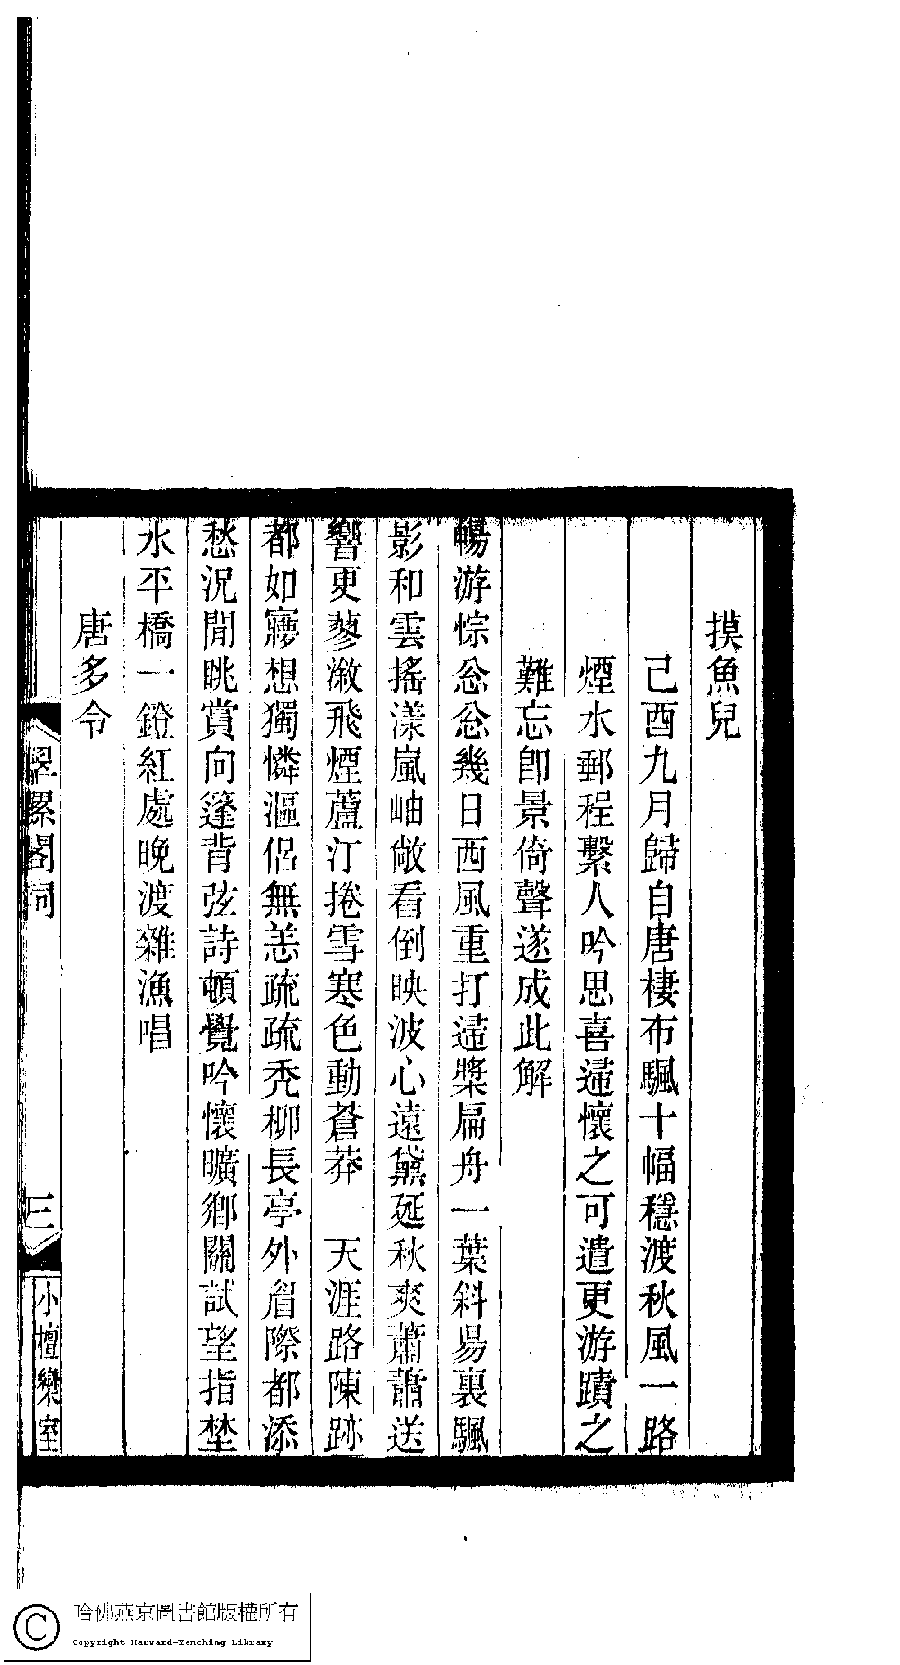 摸魚兒
己酉九月歸自唐棲布颿十幅穩渡秋風一路
煙水郵程繫人吟思喜薳懷之可遣更游蹟之
難忘卽景倚聲遂成此解
暢游悰忩忩幾日西風重打薳槳扁舟一葉斜昜裏颿
影和雲搖漾嵐岫敞看倒映波心遠黛延秋爽蕭蕭送
響更蓼漵飛煙蘆汀捲雪寒色動蒼莽　天涯路陳跡
都如寱想獨憐漚侶無恙疏疏禿柳長亭外眉際都添
愁況閒眺賞向篷背弦詩頓覺吟懷曠鄉關試望指埜
水平橋一鐙紅處晚渡雜漁唱
唐多令
翠螺閣詞
三
小檀欒室
哈佛燕京圖書館版權所有
Copyright Harvard-Yenching Library